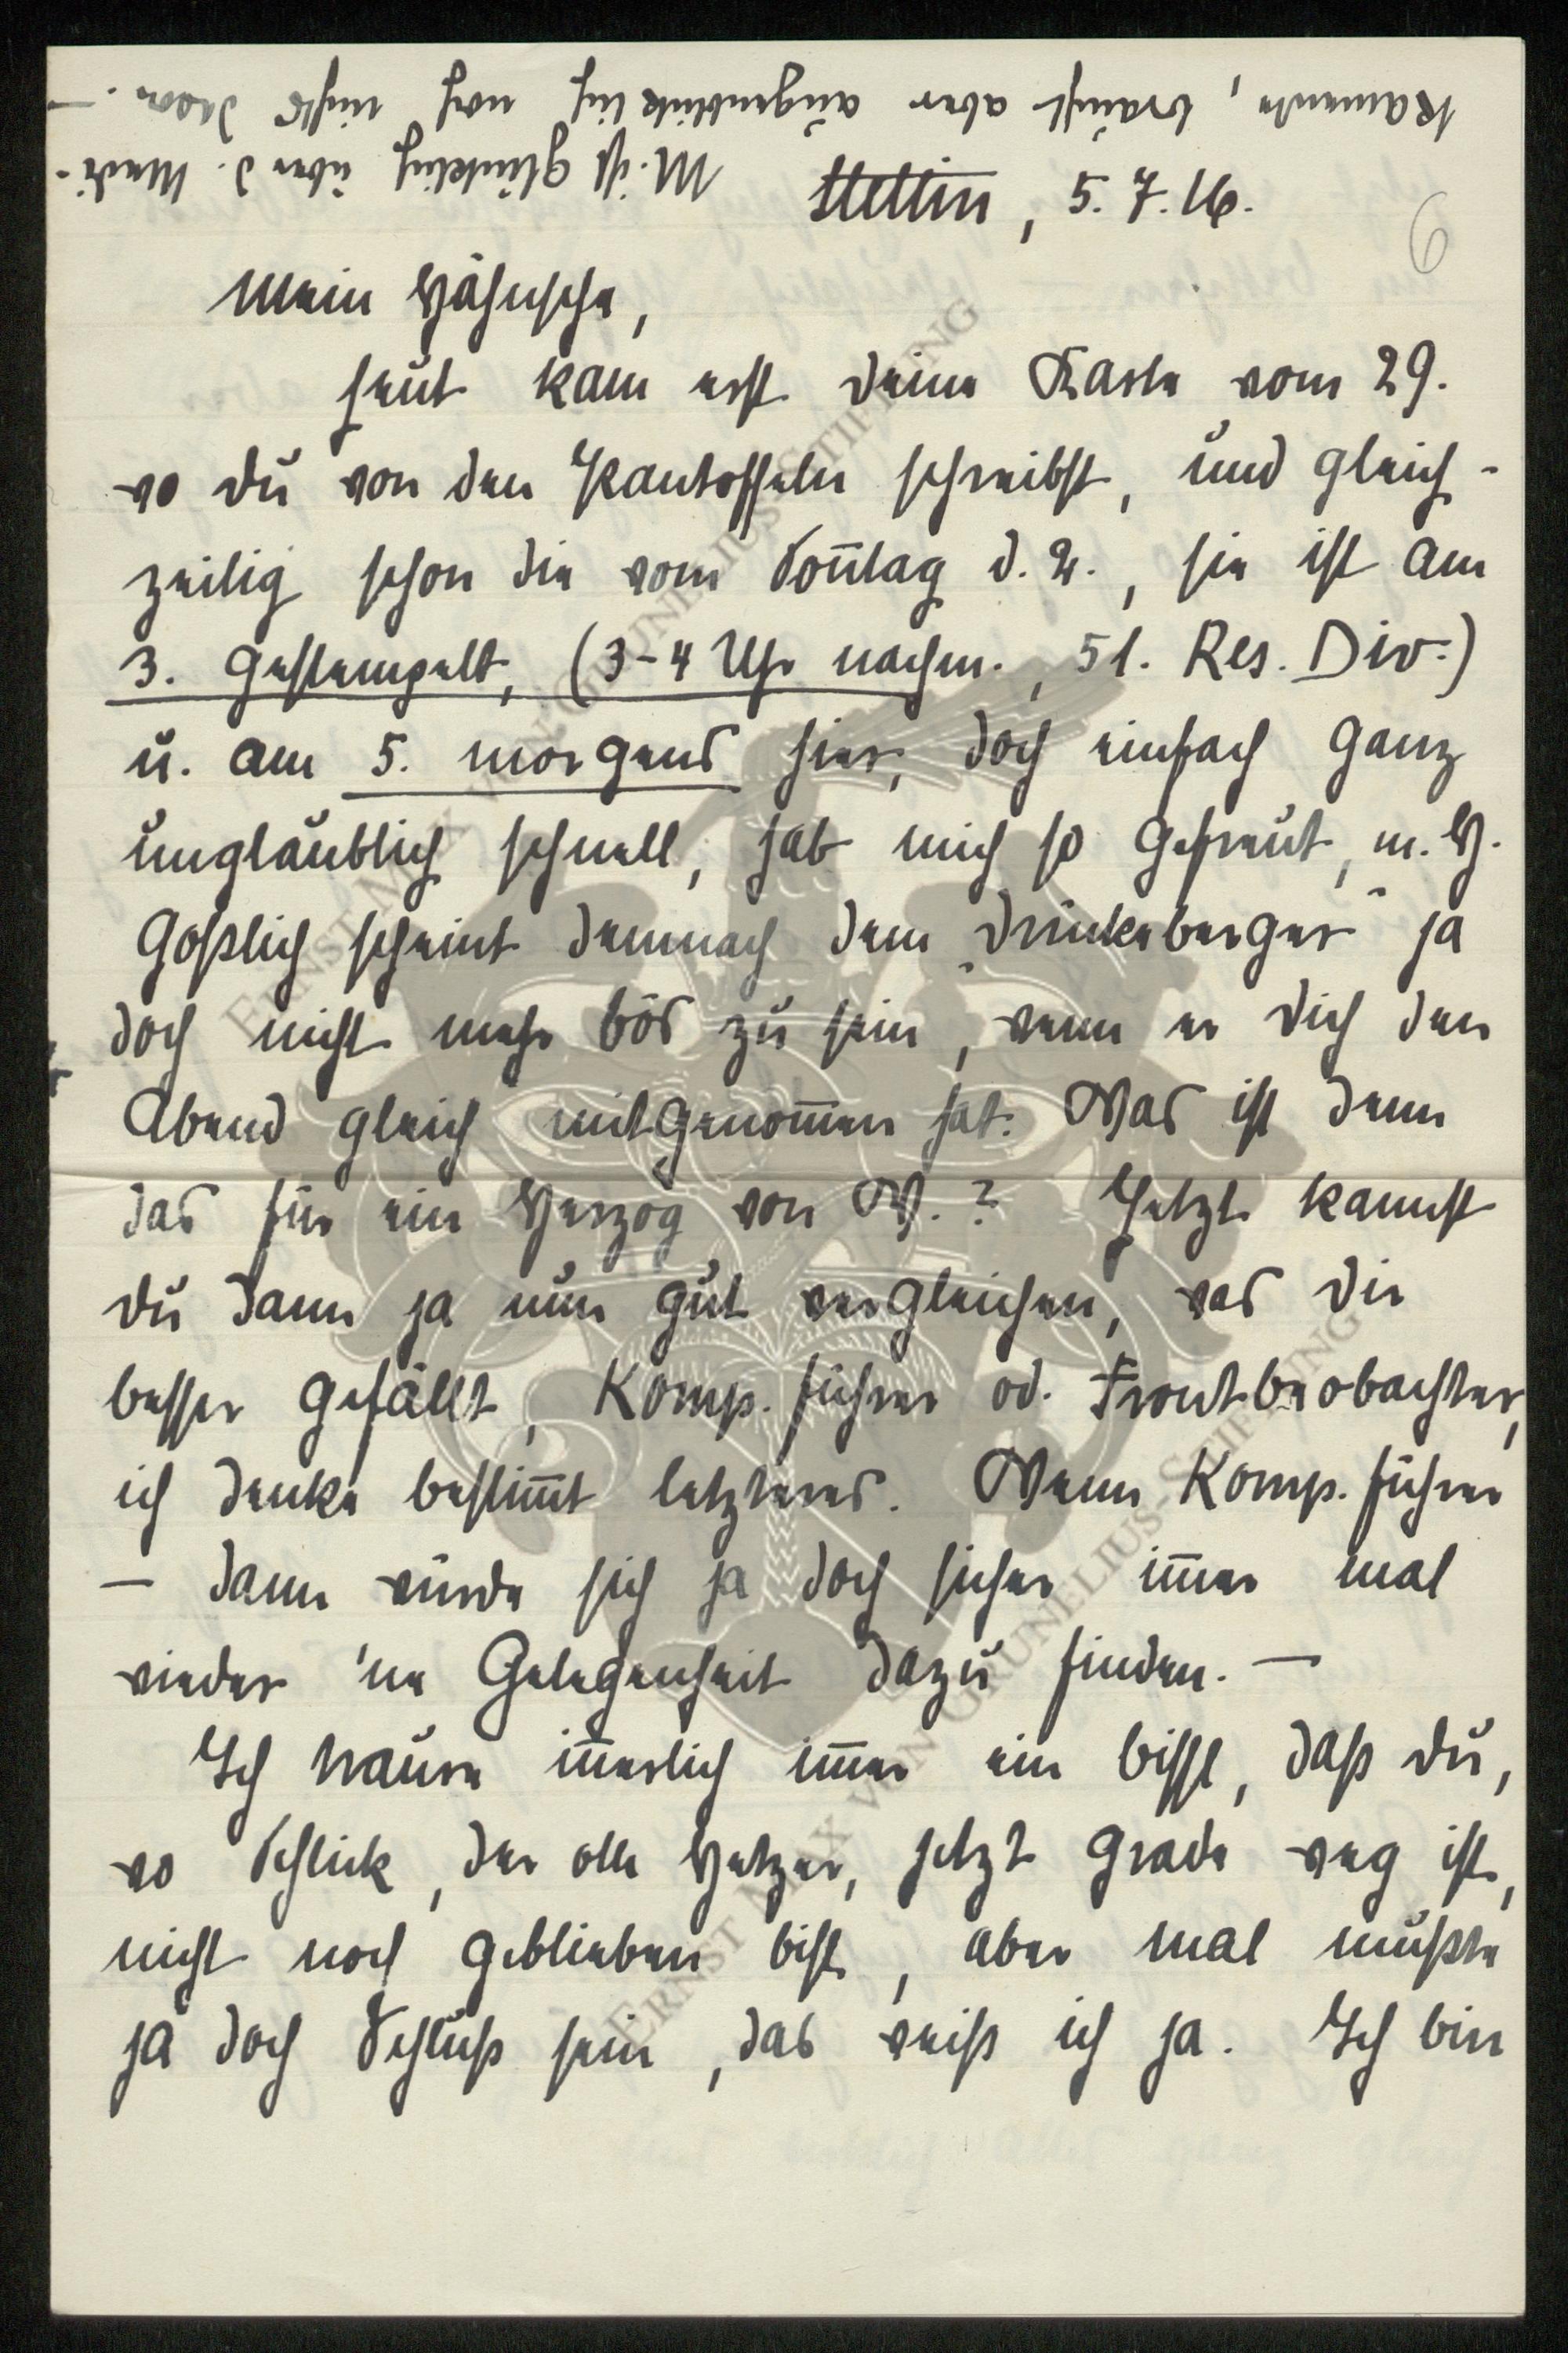 M. ist glücklich über d. Medi-
kamente, braucht aber augenblicklich noch nichts davon. —
Stettin, 5.7.16.
6
Mein Hähnsche,
heut kam erst Deine Karte vom 29.
wo Du von den Kantoffeln schreibst, und gleich-
zeitig schon die vom Soñtag d. 2., sie ist am
3. gestempelt, (3-4 Uhr nachm., 51. Res. Div.)
u. am 5. morgens hier, doch einfach ganz
unglaublich schnell, hab mich so gefreut, m. H.
Goßlich scheint demnach dem „Drückeberger" ja
doch nicht mehr bös zu sein, wenn er Dich den
Abend gleich mitgenom̄en hat. Was ist denn
das für ein Herzog von W.? Jetzt kannst
Du dann ja nun gut vergleichen, was Dir
besser gefällt, Komp. führer od. Frontbeobachter,
ich denke bestim̄t letzteres. Wenn Komp. führer
— dann würde sich ja doch sicher im̄er mal
wieder 'ne Gelegenheit dazu finden. —
Ich traure iñerlich im̄er ein bissl, daß Du,
wo Schlick, der olle Hetzer, jetzt grade weg ist,
nicht noch geblieben bist, aber mal mußte
ja doch Schluß sein, das weiß ich ja. Ich bin
ERNST MAX VON GRUNELIUS-STIFTUNG
ERNST MAX VON GRUNELIUS-STIFTUNG